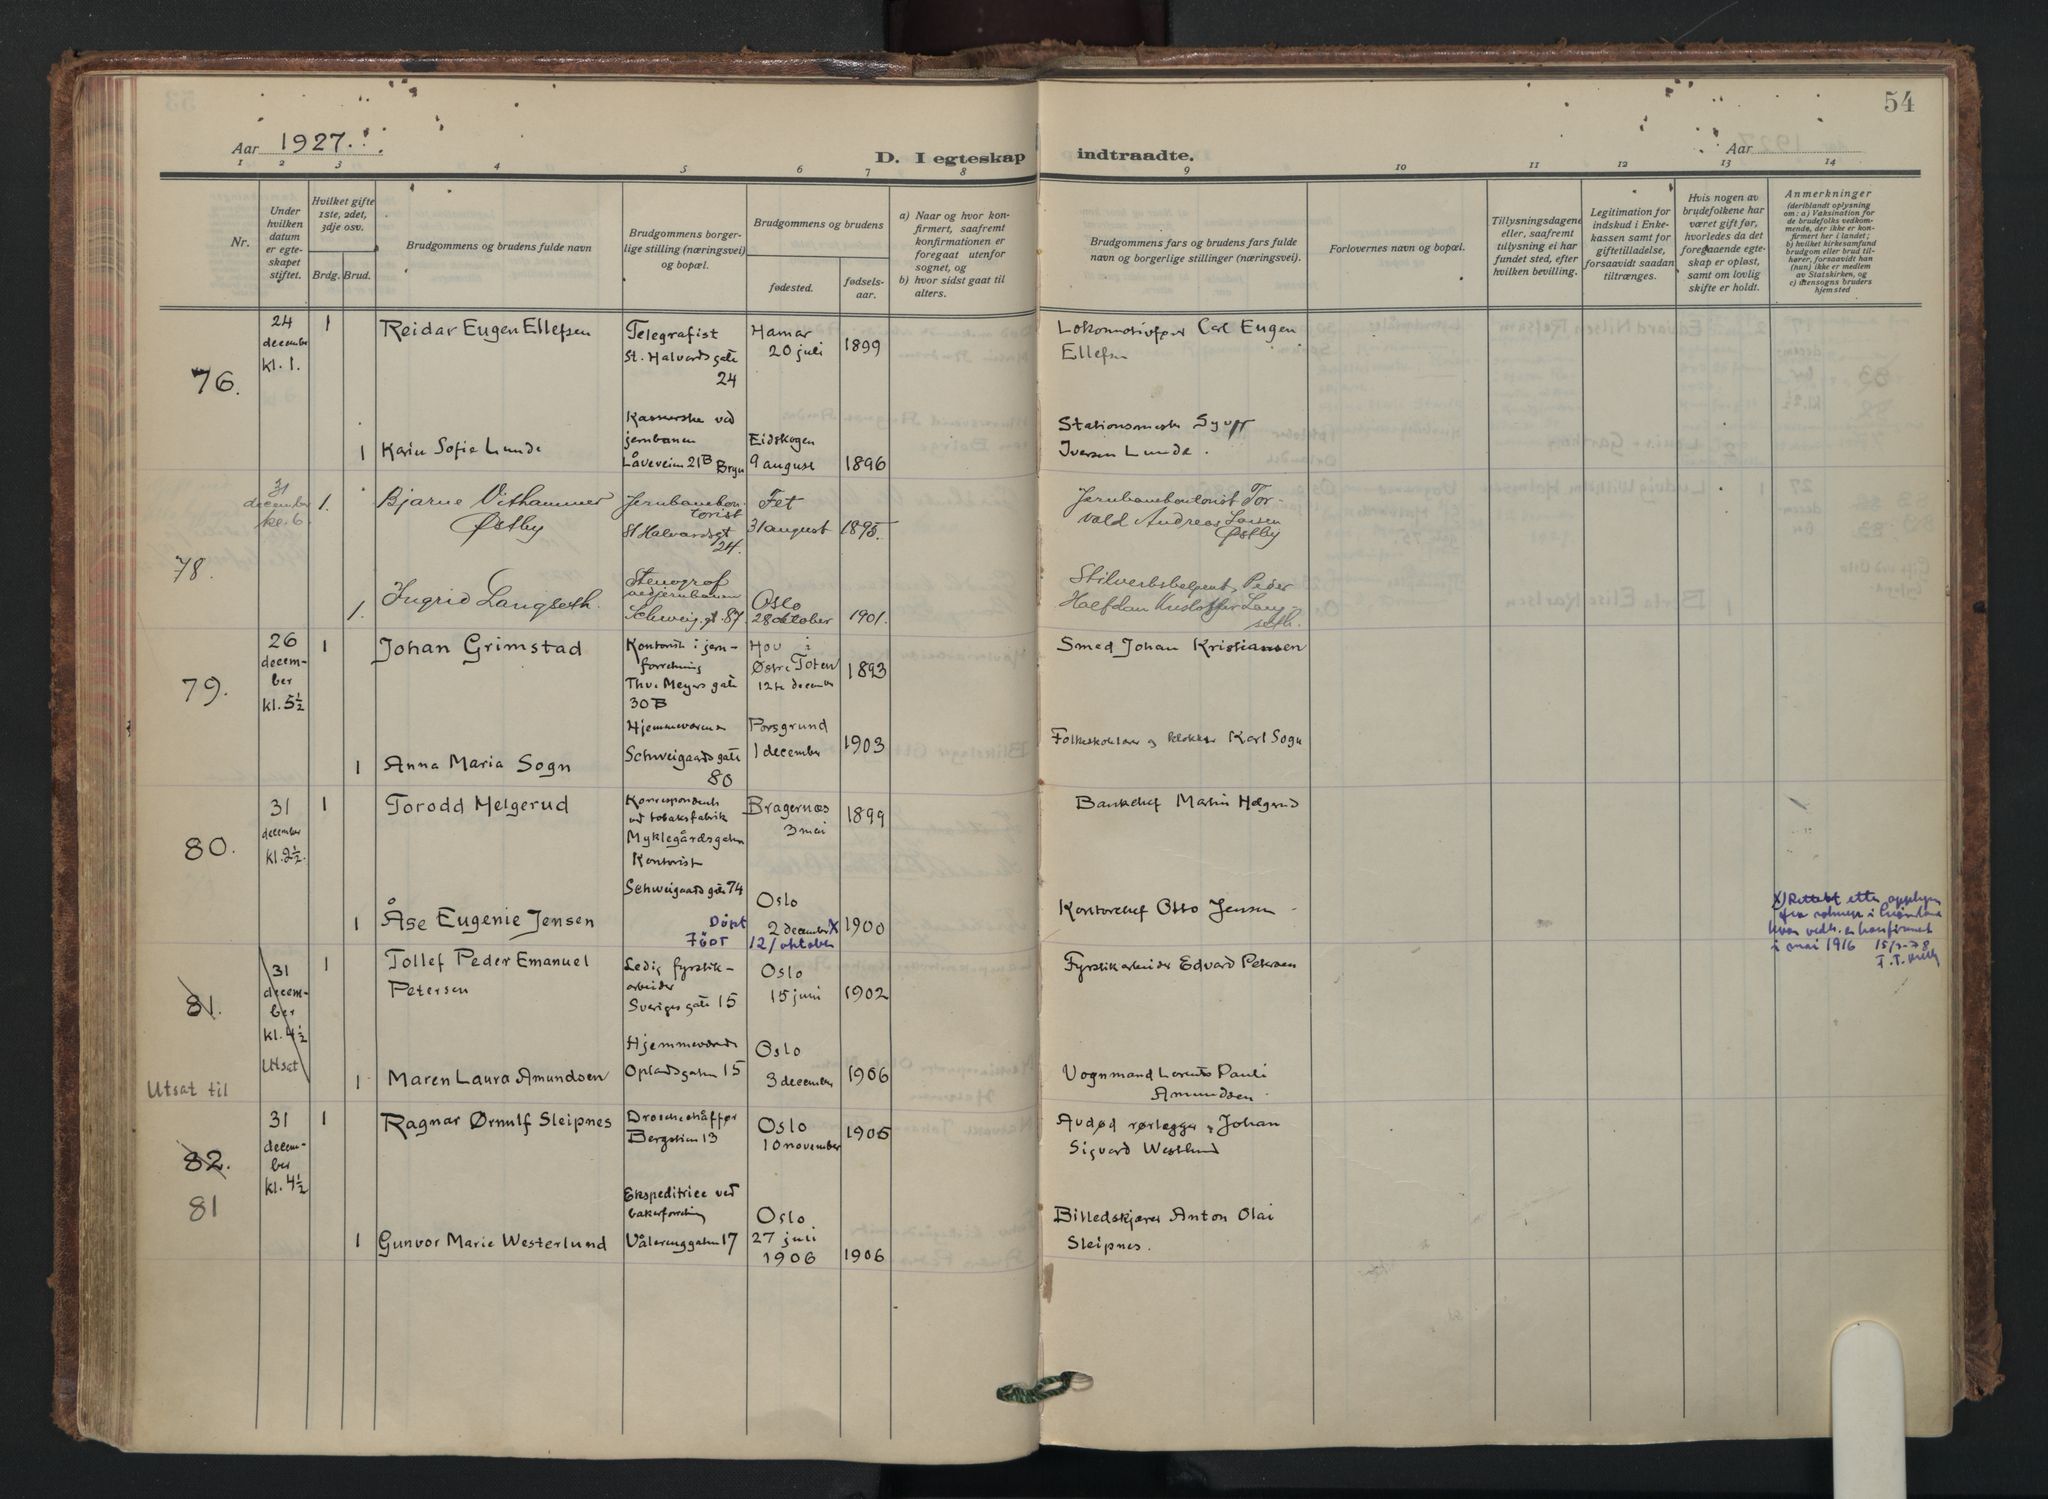 54
Aar 1927.
D. I egteskap indtraadte.
Aar
1 2 3 4 5 6 7 8 9 10 11 12 13 14
Nr.
Under hvilken datum er egteskapet stiftet.
Hvilket gifte 1ste, 2det, 3dje osv.
Brdg. Brud.
Brudgommens og brudens fulde navn
Brudgommens borgerlige stilling (næringsvei) og bopæl.
Brudgommens og brudens
fødested.
fødselsaar.
a) Naar og hvor konfirmert, saafremt konfirmationen er foregaat utenfor sognet, og
b) hvor sidst gaat til alters.
Brudgommens fars og brudens fars fulde navn og borgerlige stillinger (næringsvei).
Forlovernes navn og bopæl.
Tillysningsdagene eller, saafremt tillysning ei har fundet sted, efter hvilken bevilling.
Legitimation for indskud i Enkekassen samt for giftetilladelse, forsaavidt saadan tiltrænges.
Hvis nogen av brudefolkene har været gift før, hvorledes da det foregaaende egteskap er opløst, samt om lovlig skifte er holdt.
Anmerkninger
(deriblandt oplysning om: a) Vaksination for de brudefolks vedkommende, der ikke er konfirmert her i landet; b) hvilket kirkesamfund brudgom eller brud tilhører, forsaavidt han (hun) ikke er medlem av Statskirken, og c) utensogns bruders hjemsted
76.
24 december kl. 1.
1
Reidar Eugen Ellefsen
Telegrafist
St. Halvards gate
24
Hamar
20 juli
1899
Lokomotivfører Carl Eugen
Ellefsen
1
Karin Sofie Lunde
Kasserske ved
jernbanen
Låveveien 21B Bryn
Eidskogen
9 august
1896
Stationsmester Syver
Iversen Lunde.
78.
31
december
kl. 6.
1.
Bjarne Vithammer
Østby
Jernbanekon-
torist
St Halvardsgt
24.
Fet
31 august
1895.
Jernbanekontorist Tor-
vald Andreas Larsen
Østby
1.
Ingrid Langseth.
Stenograf
ved jernbanen
Schweig. gt. 87.
Oslo
28 oktober
1901.
Peder
Halfdan Kristoffer Lang-
seth.
79.
26
decem-
ber
kl. 5½
1
Johan Grimstad
Kontorist i jern-
forretning
Thv. Meyers gate
30B
Hov i
Østre Toten
12te december
1893
Smed Johan Kristiansen
1
Anna Maria Sogn
Hjemmeværende
Schweigaards gate
80
Porsgrund
1 december
1903
Folkeskolelærer og klokker Karl Sogn
80.
31
december
kl. 2½.
1
Torodd Helgerud
Korrespondent
ved tobaksfabrik
Myklegårdsgaten
Bragernæs
3 mai
1899
Bankchef Martin Helgerud
1
Åse Eugenie Jensen
Kontorist
Schweigaards gate 74
Döpt
Föðt
Oslo
2 december X
12/ oktober
1900
Kontorchef Otto Jensen
X) Rettet etter
i mai 1916
81.
Utsat til
31
decem-
ber
kl. 4½
Utsat
1
Tollef Peder Emanuel
Petersen
Ledig fyrstik-
arbeider
Sveriges gate 15
Oslo
15 juni
1902
Fyrstikarbeider Edvard Petersen
1
Maren Laura Amundsen
Hjemmeværende
Oplandsgaten 15
Oslo
3 december
1906
Vognmand Lorents Pauli
Amundsen
82.
81
31
decem-
ber
kl. 4½
1
Ragnar Ørnulf Sleipnes
Droscheschåffør
Bergstien 13
Oslo
10 november
1905
Avdød rørlegger Johan
Sigvard Westlund
1
Gunvor Marie Westerlund
Ekspeditrice ved
bakerforretning
Vålerenggaten 17
Oslo
27 juli
1906
1906
Billedskjærer Anton Olai
Sleipnes.